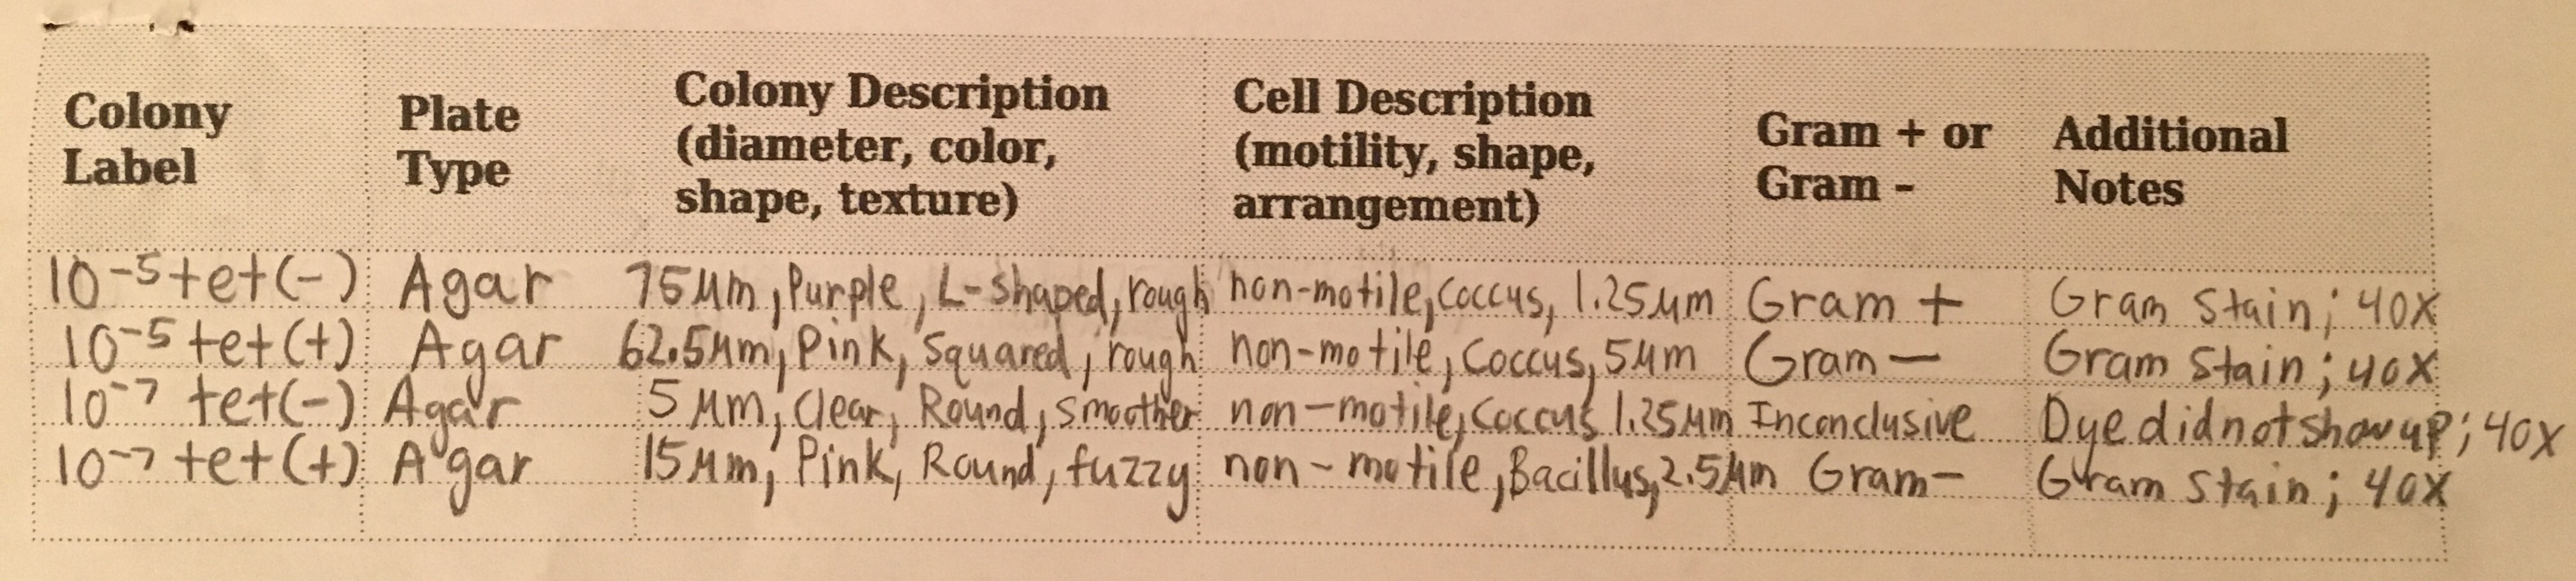 Colony Label Plate Type Colony Description (diameter, color, shape, texture) Cell Description (motility, shape, arrangement) Gram + or Gram – Additional Notes
10⁻⁵ tet(-) Agar 75 μm, Purple, L-shaped, rough non-motile, coccus, 1.25 μm Gram + Gram Stain; 40x
10⁻⁵ tet(+) Agar 62.5 μm, Pink, Squared, rough non-motile, Coccus, 5 μm Gram — Gram Stain; 40x
10⁻⁷ tet(-) Agar 5 μm, Clear, Round, Smoother non-motile, Coccus 1.25 μm Inconclusive Dye did not show up; 40x
10⁻⁷ tet(+) Agar 15 μm, Pink, Round, fuzzy non-motile, Bacillus, 2.5 μm Gram- Gram Stain; 40x